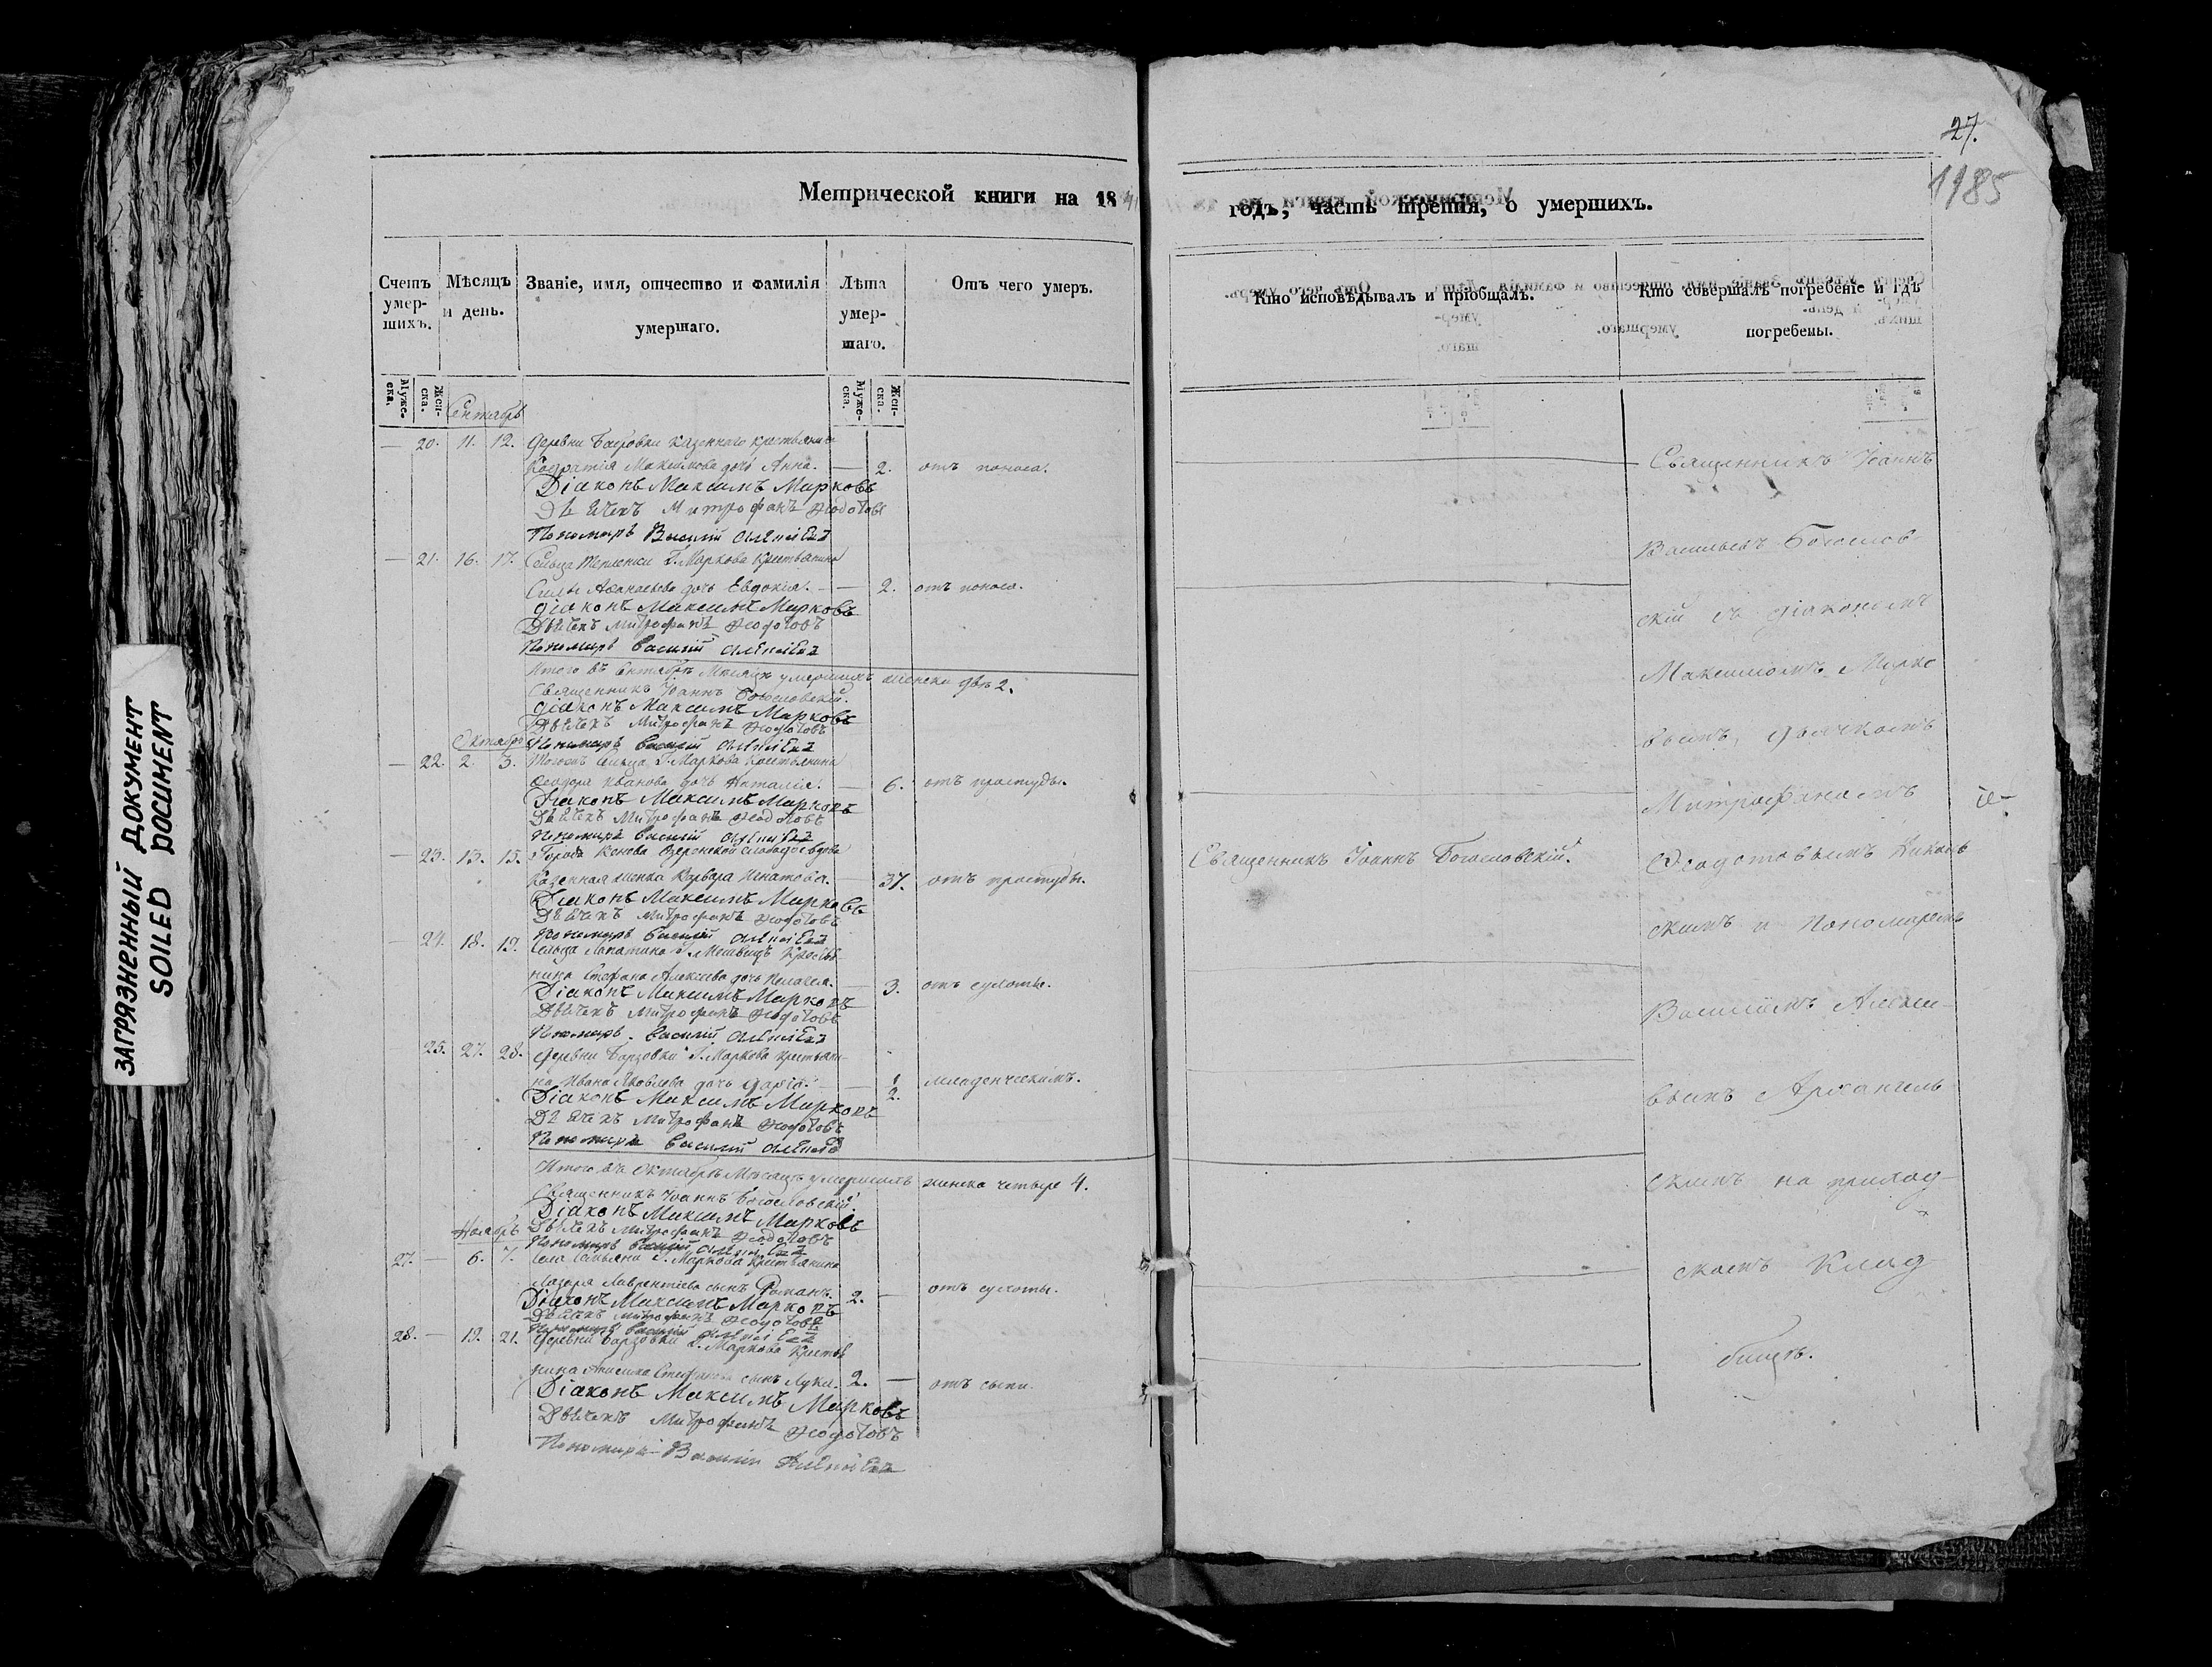 27.
1185
Метрической книги на 184
годъ, часть третія, о умершихъ.
Счетъ умер-шихъ.
Мѣсяцъ и день.
Званіе, имя, отчество и фамилія умершаго.
Лѣта умер-шаго.
Отъ чего умеръ.
Кто исповѣдывалъ и пріобщалъ.
Кто совершалъ погребеніе и гдѣ погребены.
Муже-ска.
Жен-ска.
Муже-ска.
Жен-ска.
Сентябрь
— 20. 11. 12. Деревни казеннаго крестьянина
Максимова дочь Анна. — 2. отъ поноса.
Діаконъ Максимъ Марковъ
Дьячекъ Митрофанъ Ѳеодотовъ
Пономарь Василій
— 21. 16. 17. Сельца Г. Маркова крестьянина
Силы Аѳанасьева дочь Евдокія. — 2. отъ поноса.
Діаконъ Максимъ Марковъ
Дьячекъ Митрофанъ Ѳеодотовъ
Пономарь Василій
Итого въ Сентябрѣ Мѣсяцѣ умершихъ женска двѣ 2.
Священникъ Іоаннъ Богословскій.
Діаконъ Максимъ Марковъ
Дьячекъ Митрофанъ Ѳеодотовъ
Октябрь Пономарь Василій
— 22. 2. 3. Тогожъ сельца Г. Маркова крестьянина
Ѳеодора Иванова дочь Наталія. — 6. отъ простуды.
Діаконъ Максимъ Марковъ
Дьячекъ Митрофанъ Ѳеодотовъ
Пономарь Василій
— 23. 13. 15. Города слободы вдова
Варвара Игнатова. — 37. отъ простуды.
Діаконъ Максимъ Марковъ
Дьячекъ Митрофанъ Ѳеодотовъ
Пономарь Василій
— 24. 18. 19. Сельца Лопатина Г. крестья-
нина Стефана Алексѣева дочь Пелагея. — 3. отъ сухоты.
Діаконъ Максимъ Марковъ
Дьячекъ Митрофанъ Ѳеодотовъ
Пономарь Василій
— 25. 27. 28. Деревни Барзовки Г. Маркова крестьяни-
на Ивана Яковлева дочь Дарія. — 1/2. младенческимъ.
Діаконъ Максимъ Марковъ
Дьячекъ Митрофанъ Ѳеодотовъ
Пономарь Василій
Итого въ Октябрѣ Мѣсяцѣ умершихъ женска четыре 4.
Священникъ Іоаннъ Богословскій.
Діаконъ Максимъ Марковъ
Ноябрь Дьячекъ Митрофанъ Ѳеодотовъ
Пономарь Василій
27. — 6. 7. Села Г. Маркова крестьянина
Лазаря Лаврентіева сынъ Романъ. 2. — отъ сухоты.
Діаконъ Максимъ Марковъ
Дьячекъ Митрофанъ Ѳеодотовъ
Пономарь Василій
28. — 19. 21. Деревни Барзовки Г. Маркова крестья-
нина Анисима Стефанова сынъ Лука. 2. — отъ сыпи.
Діаконъ Максимъ Марковъ
Дьячекъ Митрофанъ Ѳеодотовъ
Пономарь Василій
Священникъ Іоаннъ Богословскій.
Священникъ Іоаннъ
Васильевъ Богослов-
скій съ діакономъ
Максимомъ Марко
вымъ, дьячкомъ
Митрофаномъ
Ѳеодотовымъ Николь
скимъ и Пономаремъ
Василіемъ Алекси-
вымъ Архангель
скимъ на приход-
скомъ клад
бищѣ.
ЗАГРЯЗНЕННЫЙ ДОКУМЕНТ
SOILED DOCUMENT